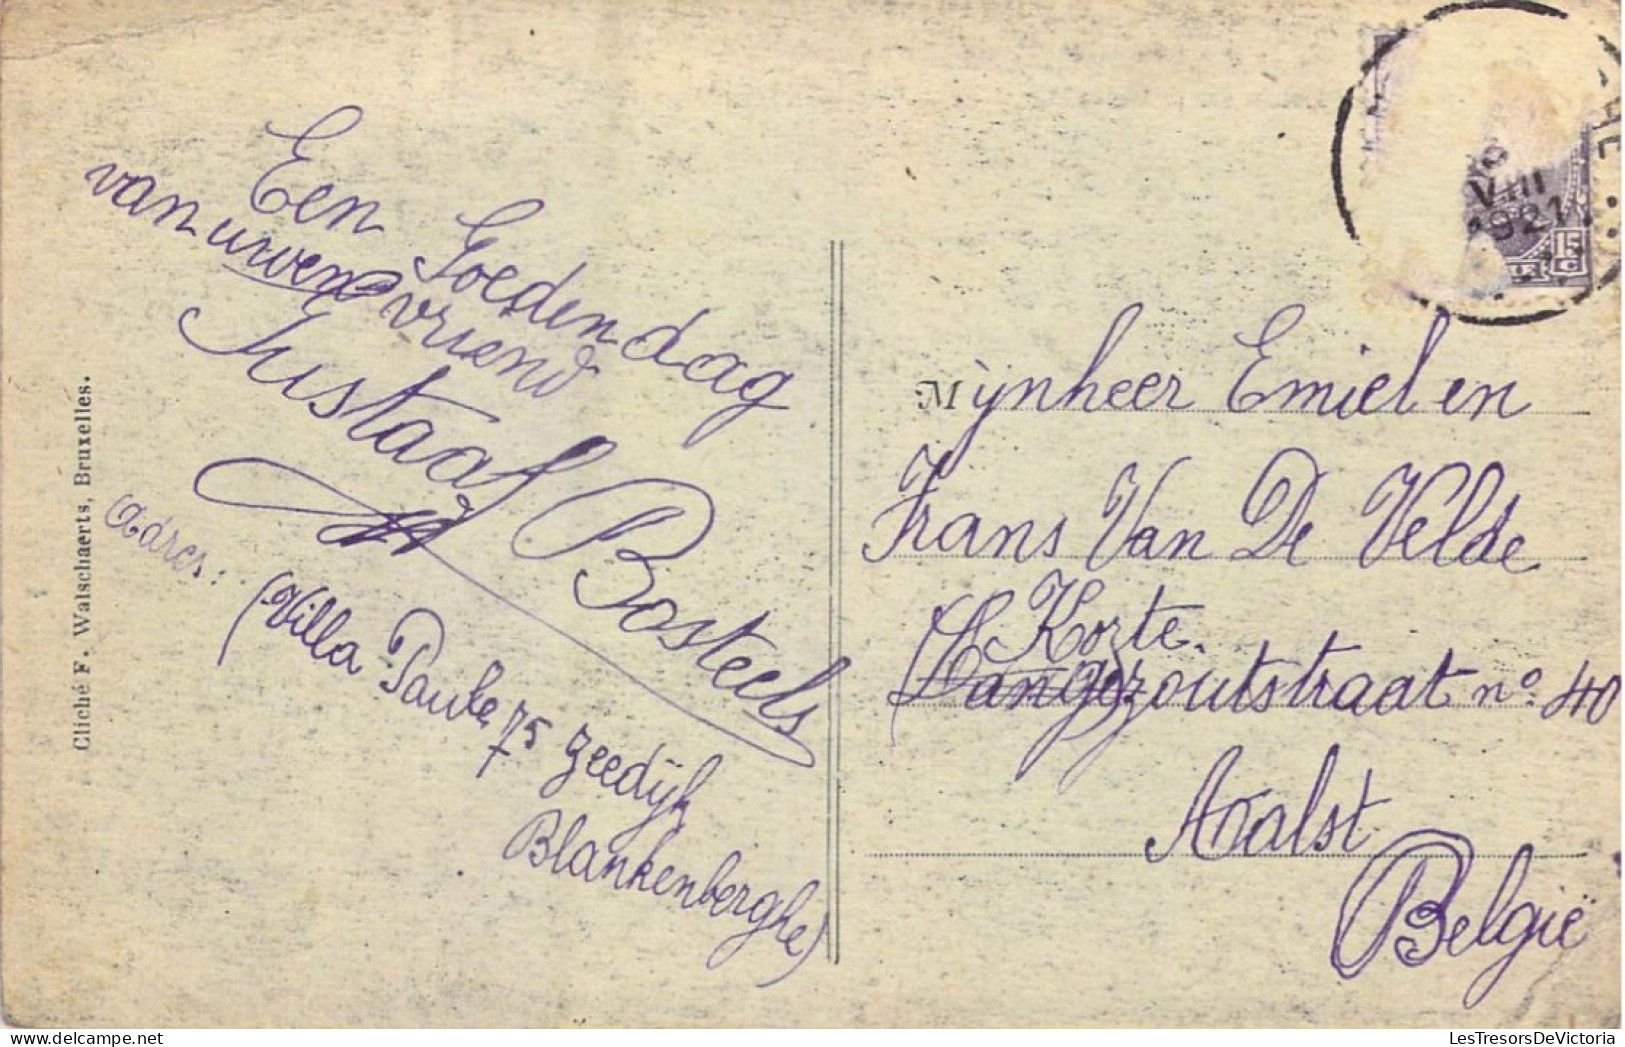 Een Goeden dag
van uwen vriend
Gustaaf Bosteels
Adres:
(Villa Paule 75 Zeedijk
Blankenberghe)
Cliché F. Walschaerts, Bruxelles.
VIII
1921
15
C
Mijnheer Emiel en
Frans Van De Velde
Korte
zoutstraat nº 40
Aalst
België
LesTresorsDeVictoria